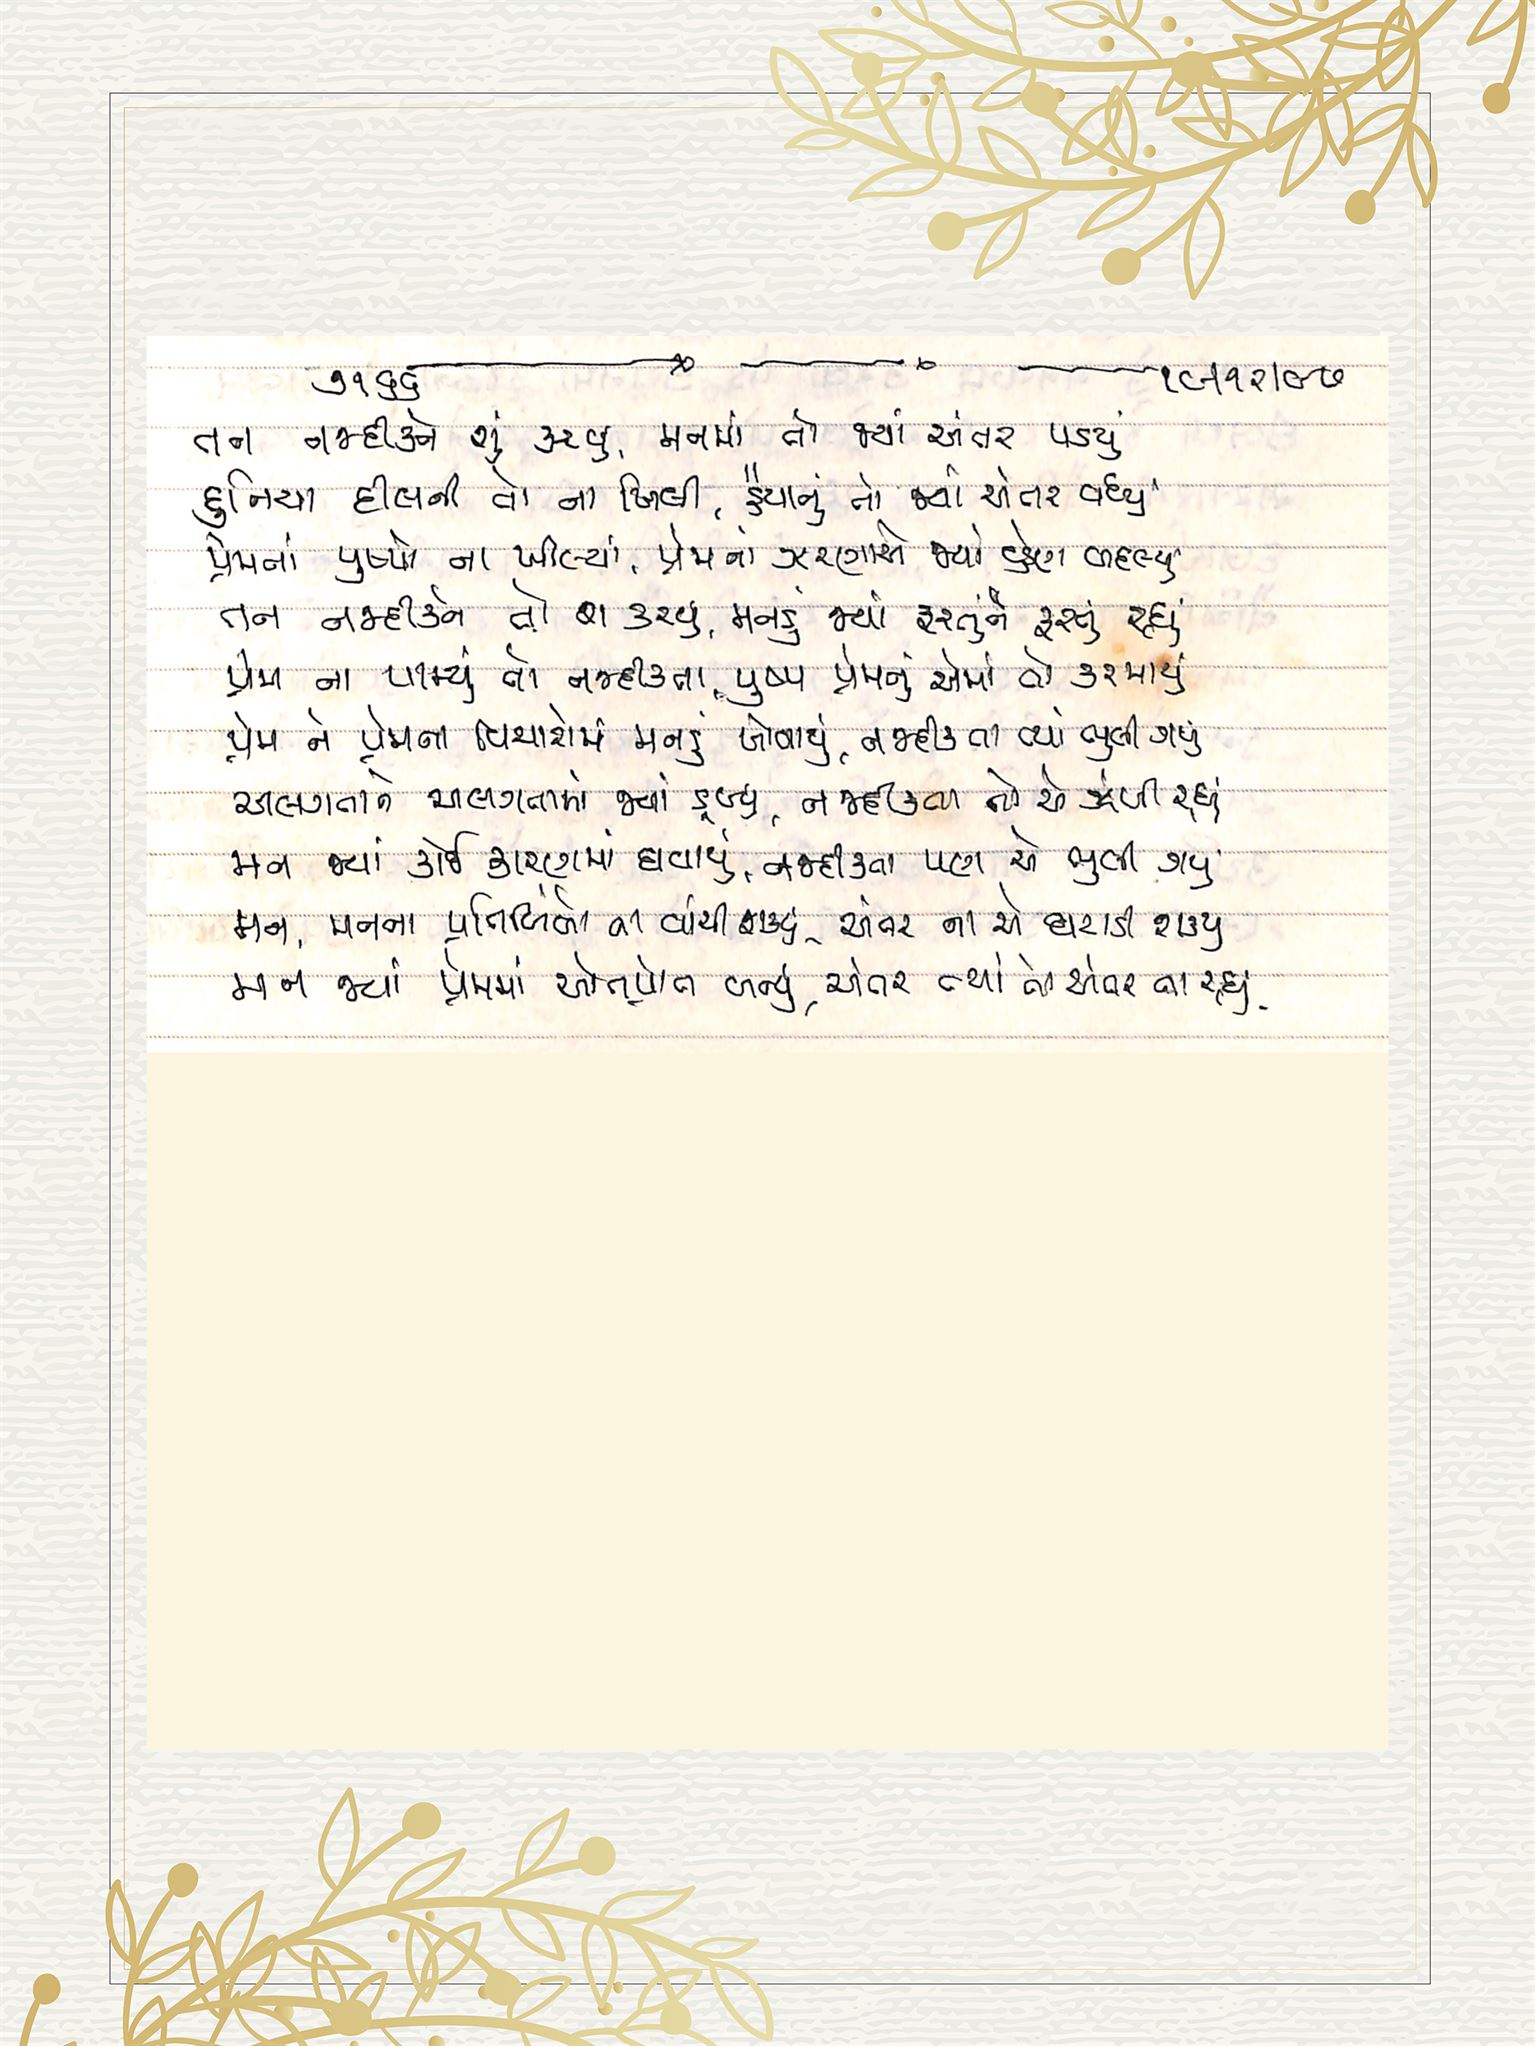 ૭૧૬૬ ૧૯।૧૨।૯૭
તન નજદીકને શું કરવું, મનમાં તો જ્યાં અંતર પડયું
દુનિયા દીલની તો ના ખિલી, હૈયાનું તો જ્યાં અંતર વધ્યું
પ્રેમનાં પુષ્પો ના ખીલ્યાં, પ્રેમનાં ઝરણાએ જ્યાં વહેણ બદલ્યું
તન નજદીકને તો શું કરવું, મનડું જ્યાં ફરતુંને ફરતું રહ્યું
પ્રેમ ના પામ્યું તો નજદીકતા, પુષ્પ પ્રેમનું એમાં તો કરમાયું
પ્રેમ ને પ્રેમના વિચારોમાં મનડું ખોવાયું, નજદીકતા ત્યાં ભુલી ગયું
અલગતાને અલગતામાં જ્યાં ડૂબ્યું, નજદીકતા તો એ ઝંખી રહ્યું
મન જ્યાં કોઈ કારણમાં ઘવાયું, નજદીકતા પણ એ ભુલી ગયું
મન, મનના પ્રતિબિંબો ના વાંચી શક્યું, અંતર ના એ હટાડી શક્યું
મન જ્યાં પ્રેમમાં ઓતપ્રોત બન્યું, અંતર ત્યાં તો અંતર ના રહ્યું.